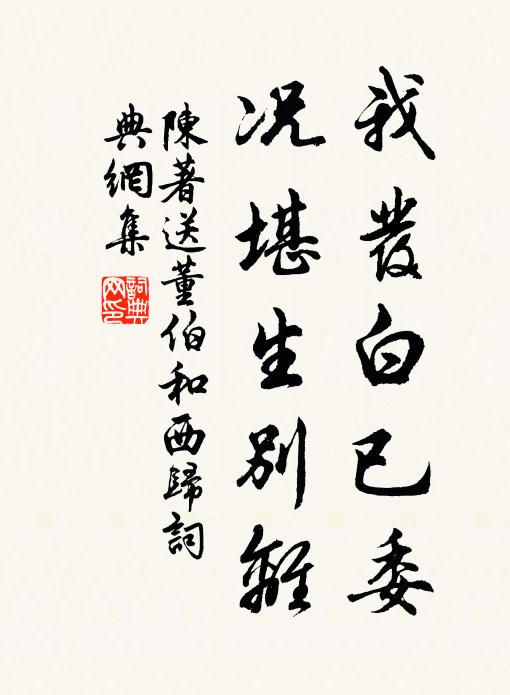 我發白已委
況堪生別離
陳著送董伯和西歸詞
典網集
詞典
网印